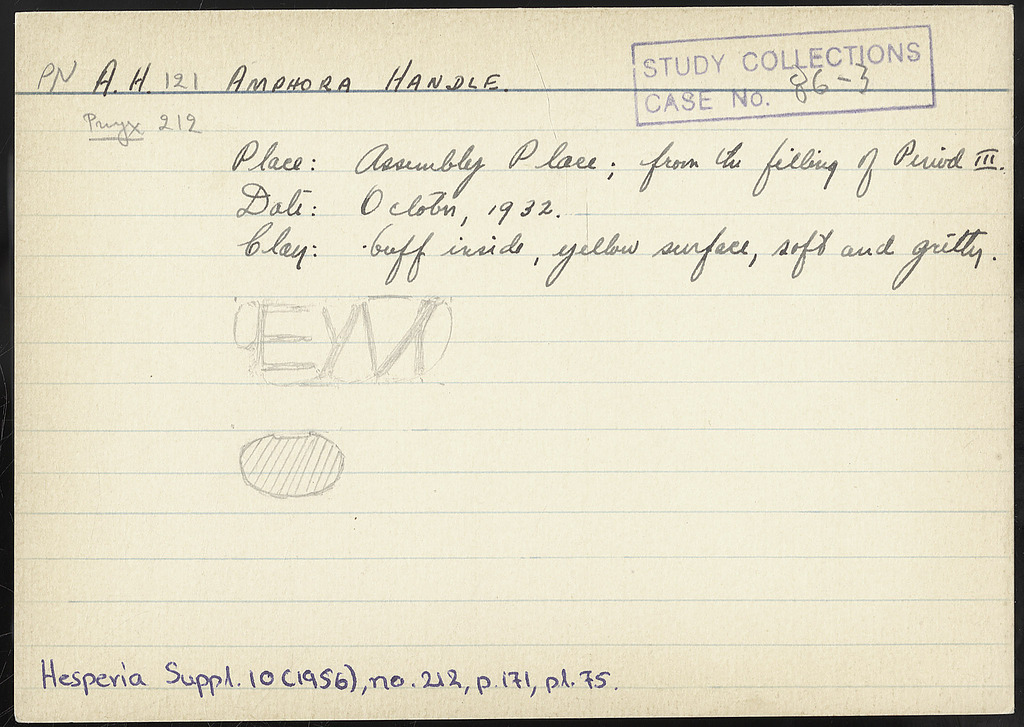 PN A.H. 121 AMPHORA HANDLE.
STUDY COLLECTIONS
CASE No. 86-3
Pnyx 212
Place: Assembly Place; from the filling of Period III.
Date: October, 1932.
Clay: buff inside, yellow surface, soft and gritty.
Hesperia Suppl. 10 (1956), no. 212, p. 171, pl. 75.